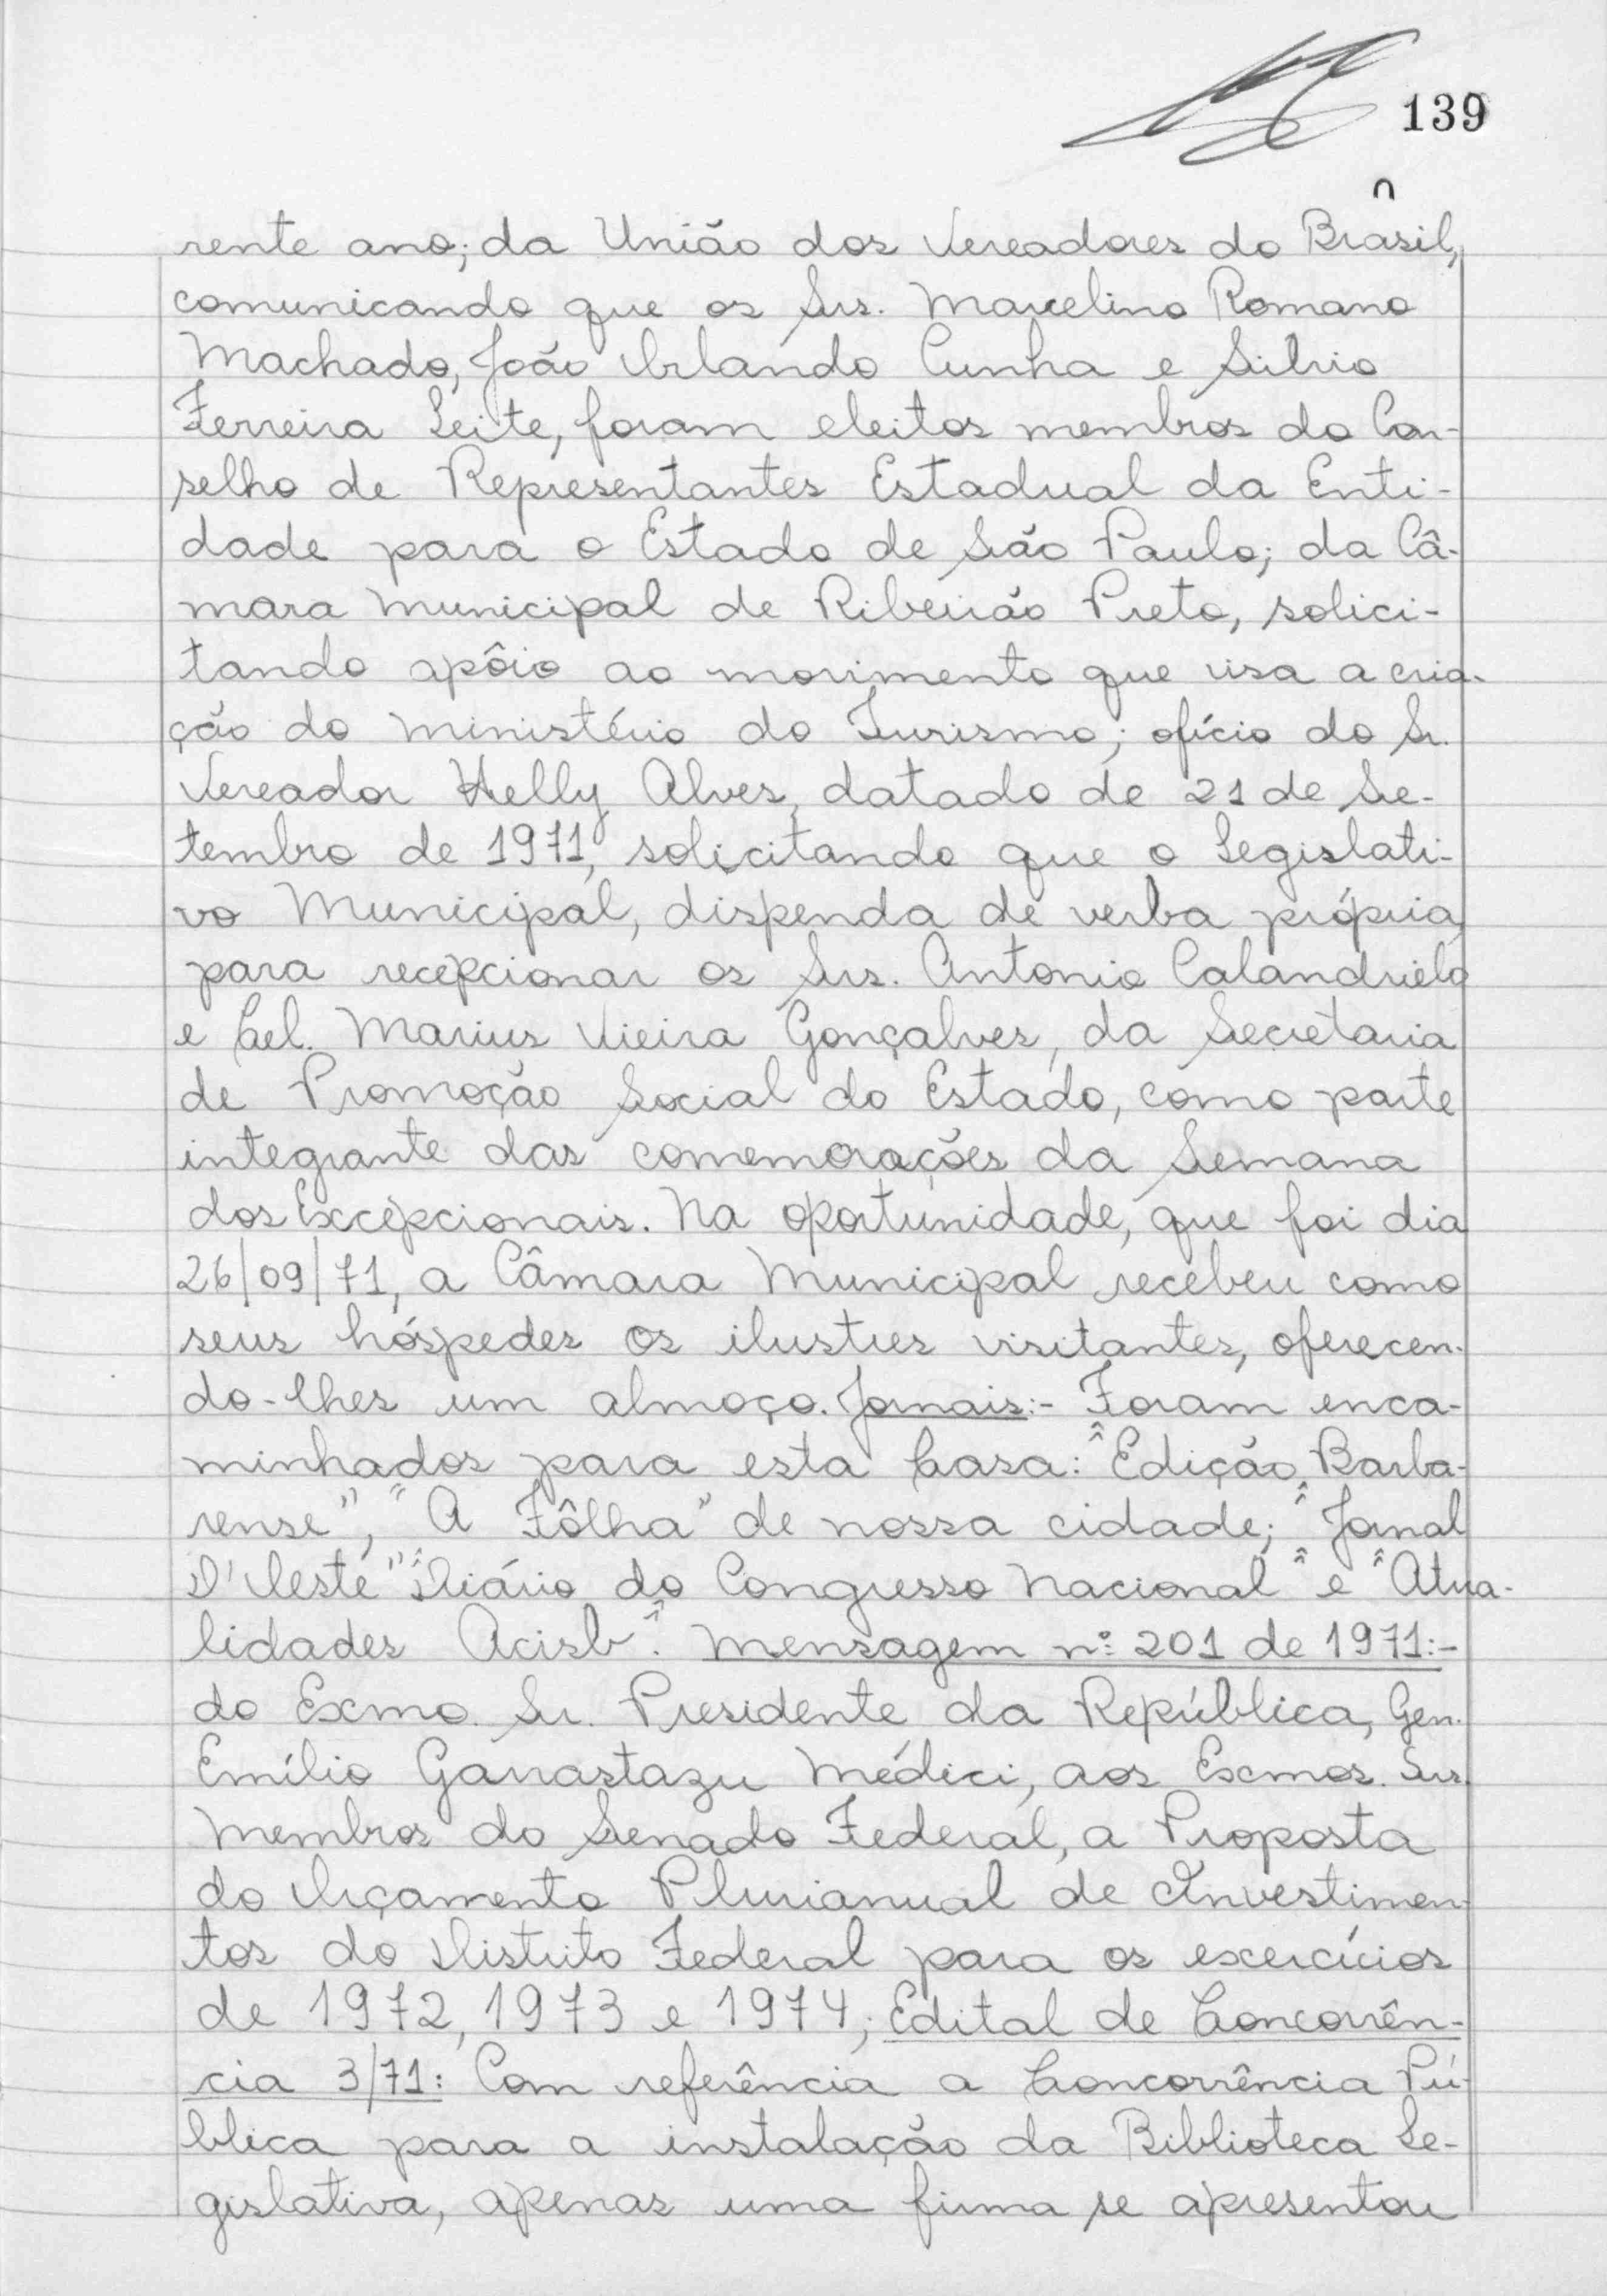 139
rente ano; da União dos Vereadores do Brasil,
comunicando que os Srs. Marcelino Romano
Machado, João Orlando Cunha e Silvio
Ferreira Leite, foram eleitos membros do Con-
selho de Representantes Estadual da Enti-
dade para o Estado de São Paulo; da Câ-
mara Municipal de Ribeirão Preto, solici-
tando apôio ao movimento que visa a cria-
ção do Ministério do Turismo; ofício do Sr.
Vereador Helly Alves, datado de 21 de Se-
tembro de 1971, solicitando que o Legislati-
vo Municipal, dispenda de verba própria,
para recepcionar os Srs. Antonio Calandrielo
e Cel. Marius Vieira Gonçalves, da Secretaria
de Promoção Social do Estado, como parte
integrante das comemorações da Semana
dos Excepcionais. Na oportunidade, que foi dia
26/09/71, a Câmara Municipal recebeu como
seus hóspedes os ilustres visitantes, oferecen-
do-lhes um almoço. Jornais:- Foram enca-
minhados para esta Casa: "Edição Barba-
rense", "A Fôlha" de nossa cidade; "Jornal
D'Oeste" "Diário do Congresso Nacional" e "Atua-
lidades Acisb". Mensagem nº 201 de 1971:-
do Exmo. Sr. Presidente da República, Gen.
Emílio Garrastazu Médici, aos Exmos. Srs.
Membros do Senado Federal, a Proposta
do Orçamento Plurianual de Investimen-
tos do Distrito Federal para os exercícios
de 1972, 1973 e 1974; Edital de Concorrên-
cia 3/71: Com referência a Concorrência Pú-
blica para a instalação da Biblioteca Le-
gislativa, apenas uma firma se apresentou